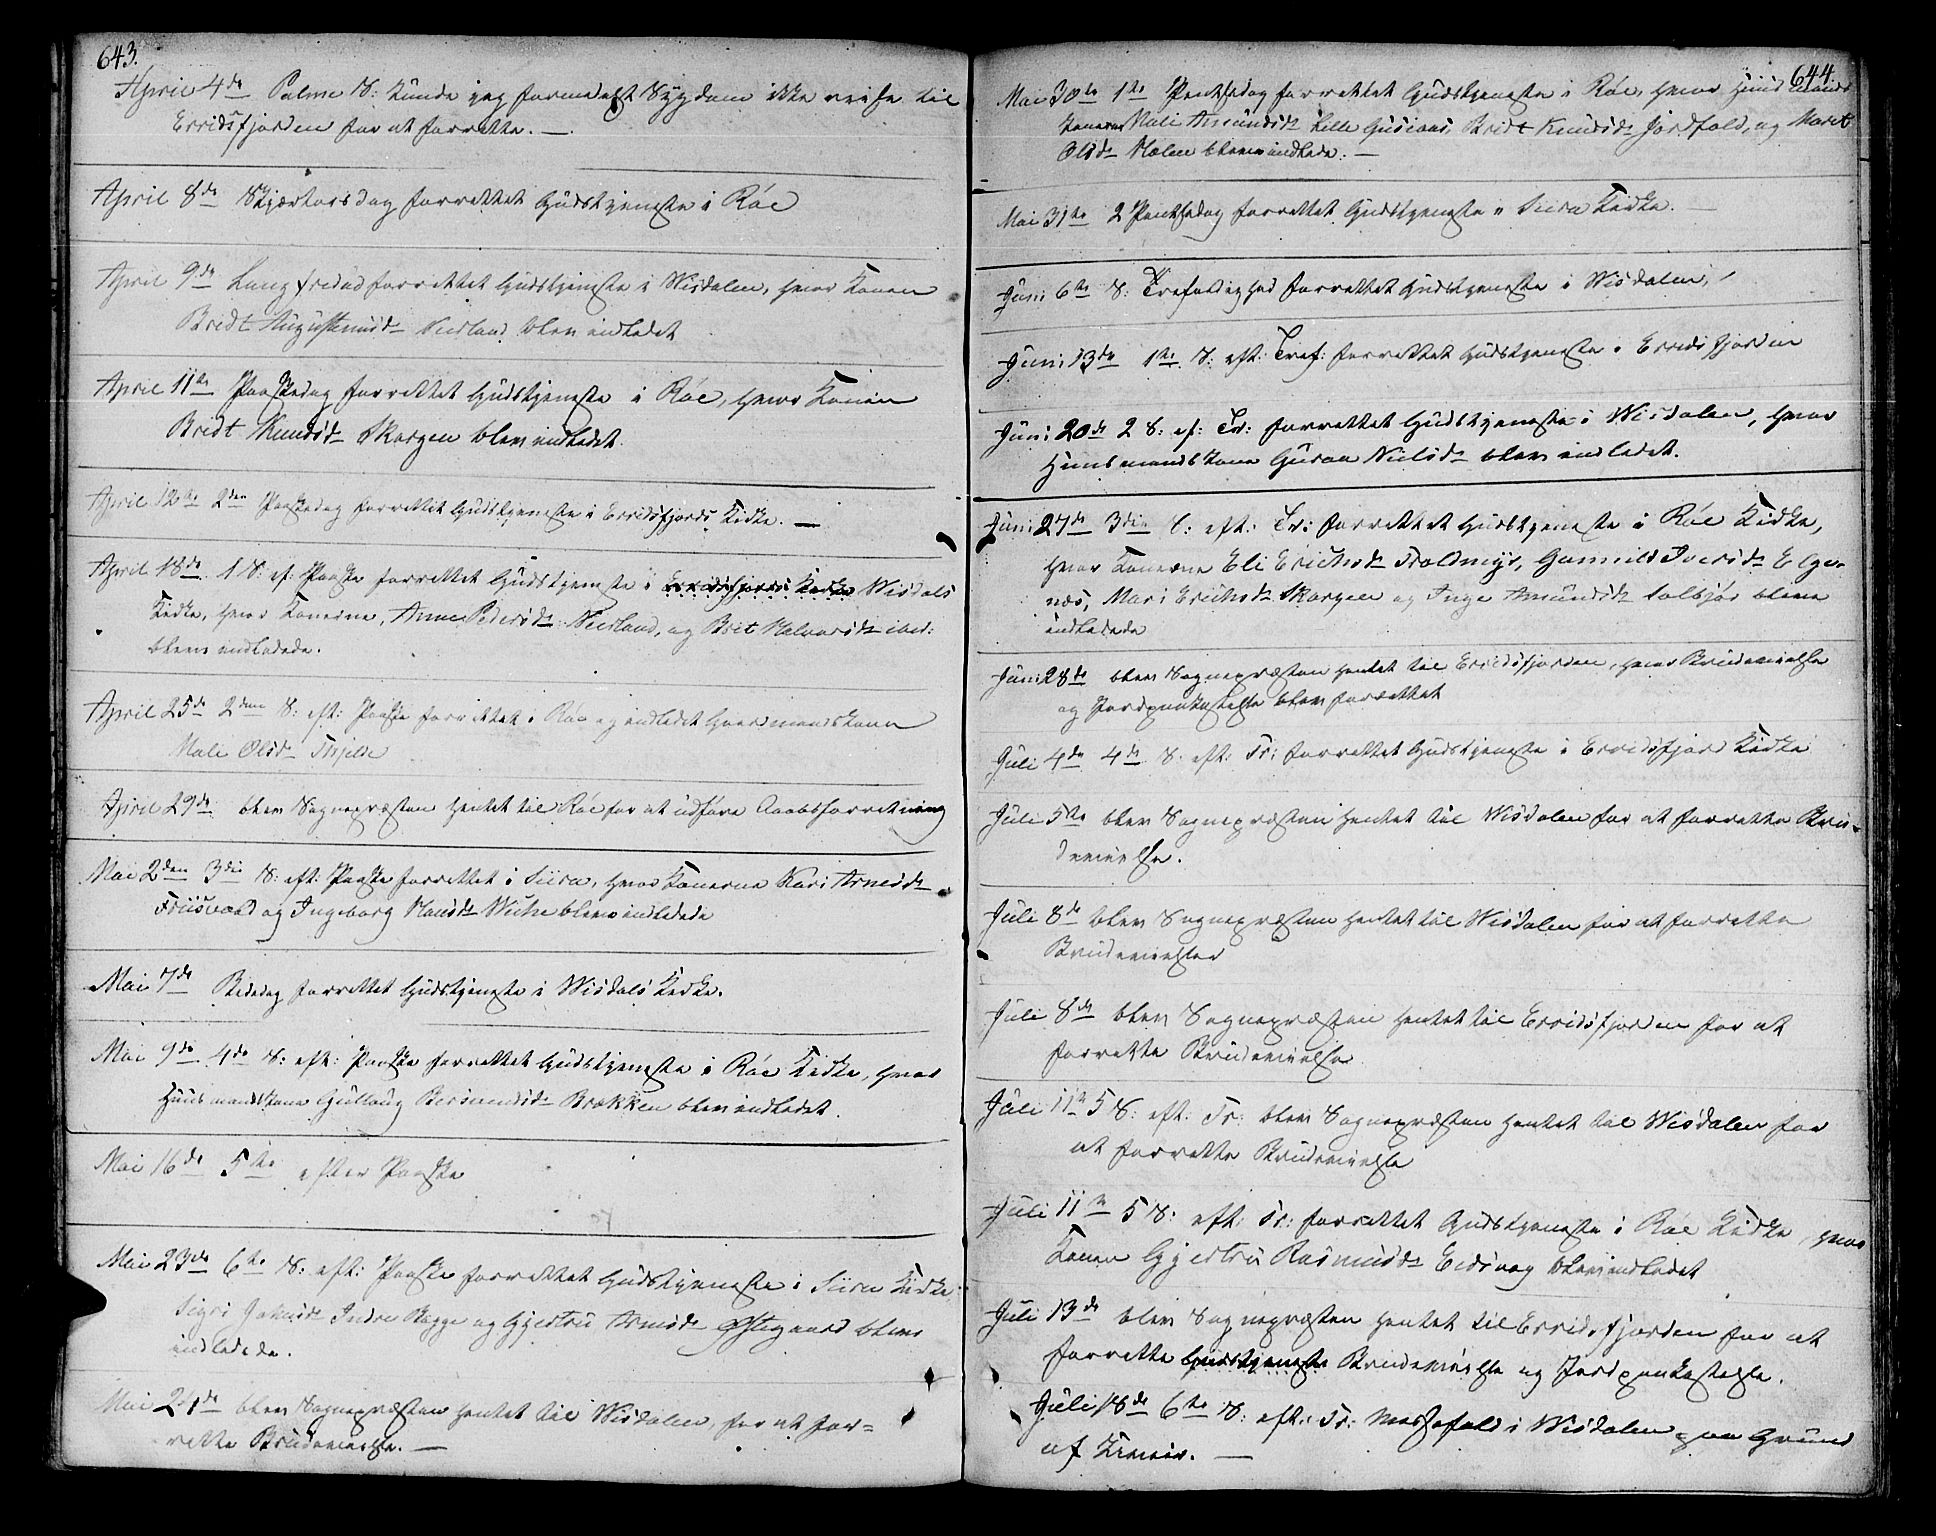 643.
April 4de Palme S: kunde jeg formedelst Sygdom ikke reise til
Eridsfjorden for at forrette. —
April 8de Skjærtorsdag forrettet Gudstjeneste i Røe
April 9de Langfredad forrettet Gudstjeneste i Wisdalen, hvor Konen
Bridt Augustinusd: blev indledet
April 11te Paaskedag forrettet Gudstjeneste i Røe, hvor Konen
Bridt Knudsd: Skorgen blev indledet.
April 12te 2den Paaskedag forrettet Gudstjeneste i Eridsfjords Kirke. —
April 18de 1 S: ef: Paaske forrettet Gudstjeneste i Eridsfjords Kirke Wisdals
Kirke, hvor Konerne, Anne Pedersd: og Brit Halvorsd: ibid:
blev indledede.
April 25de 2den S: eft: Paaske forrettet i Røe og indledet Huusmandskone
Mali Olsd:
April 29de blev Sognepræsten hentet til Røe for at udføre Daabsforretning
Mai 2den 3die S: eft: Paaske forrettet i Siira, hvor Konerne Kari Arnesd:
Friisvold og Ingeborg Hansd: Wiche blev indledede
Mai 7de Bededag forrettet Gudstjeneste i Wisdals Kirke.
Mai 9de 4de S: eft: Paaske forrettet Gudstjeneste i Røe Kirke, hvor
Huusmandskone Gullaug Bersvendsd: Brekken blev indledet.
Mai 16de 5te efter Paaske
Mai 23de 6te S: eft: Paaske forrettet Gudstjeneste i Siira Kirke
Sigri Indre Bogge og Gjertru Arnesd: Østigaard blev
indledede.
Mai 24de blev Sognepræsten hentet til Wisdalen, for at for=
rette Brudevielse. —
644.
Mai 30te 1te Pintsedag forrettet Gudstjeneste i Røe, hvor Huusmands
konerne Mali Amundsd: Lille Bridt Knudsd: Jordfald, og Marit
Olsd: blev indledede. —
Mai 31te 2 Pintsedag forrettet Gudstjeneste i Siira Kirke.
Juni 6te S: Trefoldighed forrettet Gudstjeneste i Wisdalen,
Juni 13de 1te S: eft: Tref: forrettet Gudstjeneste i Eridsfjorden
Juni 20de 2 S: ef: Tr: forrettet Gudstjeneste i Wisdalen, hvor
Huusmandskone Guroe Nielsd: blev indledet.
Juni 27de 3die S: eft: Tr: forrettet Gudstjeneste i Røe Kirke,
hvor Konerne Eli Erichsd: Troldmyr, Gunnild Iversd: Elge-
næs, Mari Erichsd: Skorgen og Inge Amundsd: Solbjør blev
indledede
Juni 28de blev Sognepræsten hentet til Eridsfjorden, hvor Brudevielse
og Jordpaakastelse blev forrettet
Juli 4de 4de S: eft: Tr: forrettet Gudstjeneste i Eridsfjord Kirke
Juli 5te blev Sognepræsten hentet til Wisdalen for at forrette Bru-
devielse.
Juli 8de blev Sognepræsten hentet til Wisdalen for at forrette
Brudevielser
Juli 8de blev Sognepræsten hentet til Eridsfjorden for at
forrette Brudevielse
Juli 11te 5 S: eft: Tr: blev Sognepræsten hentet til Wisdalen for
at forrette Brudevielse
Juli 11te 5 S: eft: Tr: forrettet Gudstjeneste i Røe Kirke, hvor
Konen Gjertru Rasmusd: Eidsvog blev indledet
Juli 13de blev Sognepræsten hentet til Eridsfjorden for at
forrette Gudstjeneste Brudevielse og Jordpaakastelse.
Juli 18de 6te S: eft: Tr: Messefald i Wisdalen paa Grund
af